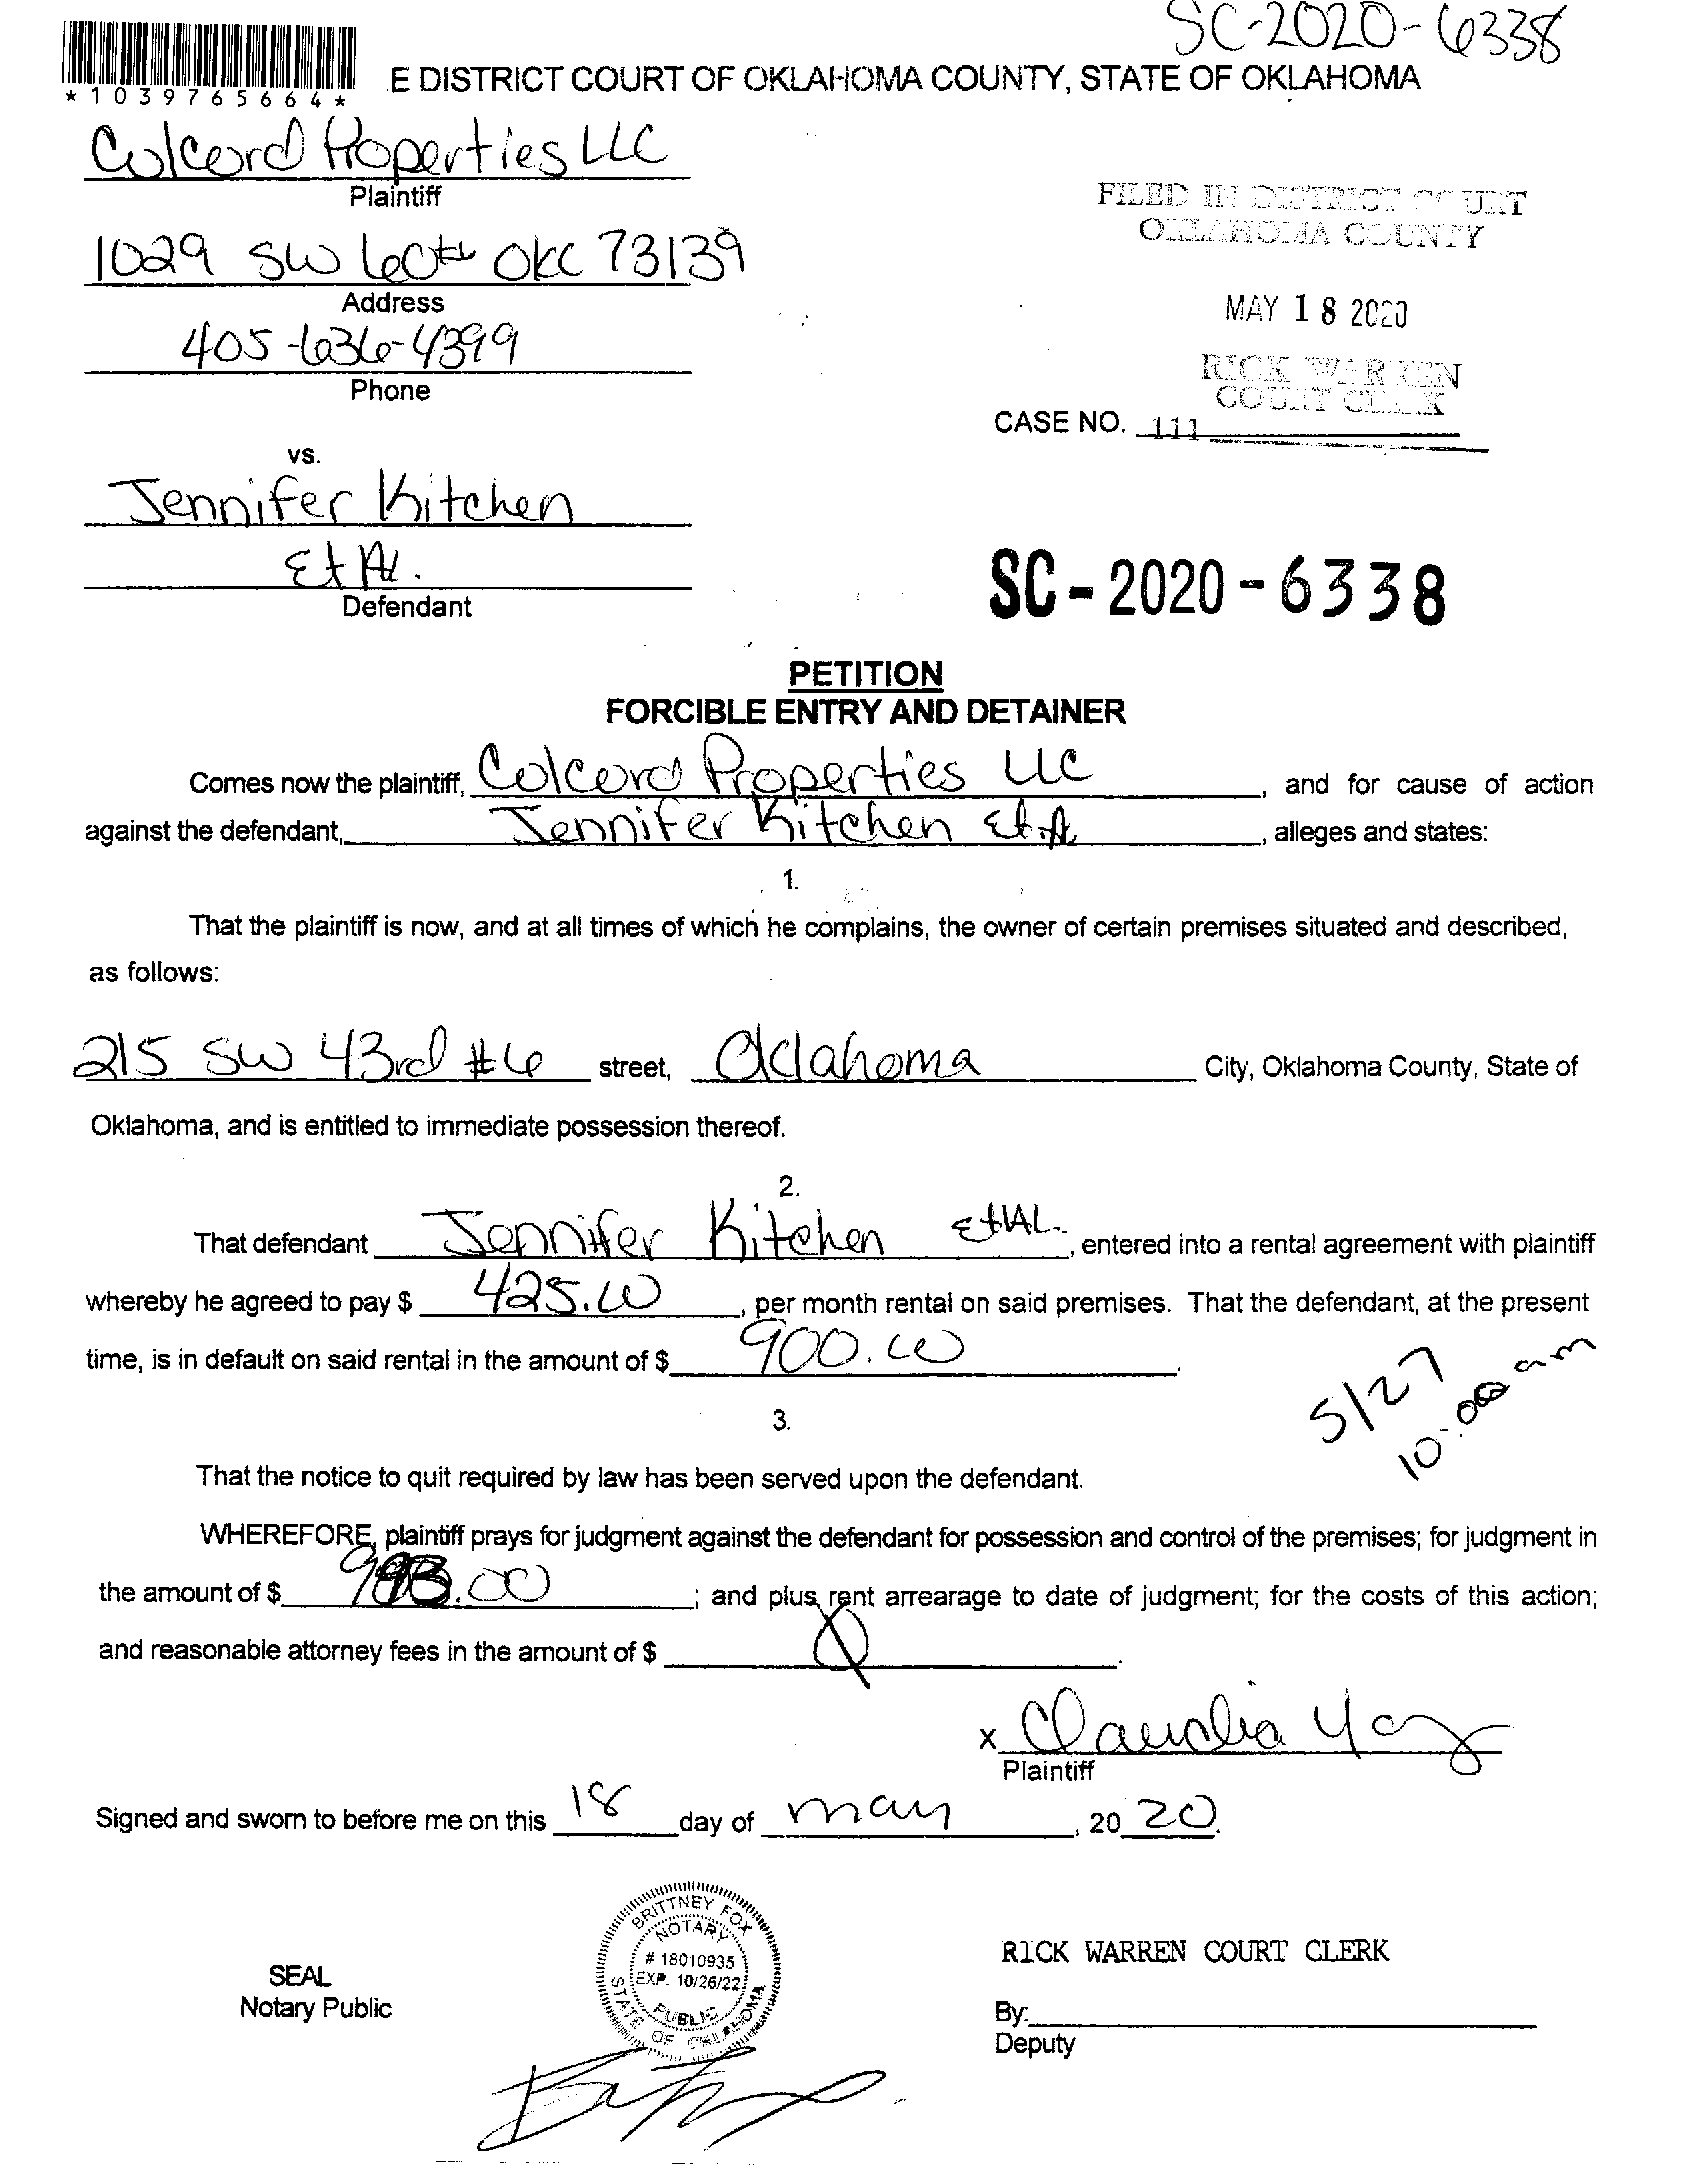 SC-2020-6338
*1039765664*
E DISTRICT COURT OF OKLAHOMA COUNTY, STATE OF OKLAHOMA
Colcord Properties LLC
Plaintiff
1029 SW 60th OKC 73139
Address
405-636-4399
Phone
FILED IN DISTRICT COURT
OKLAHOMA COUNTY
MAY 18 2020
RICK WARREN
COURT CLERK
CASE NO. 111
vs.
Jennifer Kitchen
Et Al.
Defendant
SC-2020-6338
PETITION
FORCIBLE ENTRY AND DETAINER
Comes now the plaintiff, Colcord Properties LLC, and for cause of action
against the defendant, Jennifer Kitchen Et Al, alleges and states:
1.
That the plaintiff is now, and at all times of which he complains, the owner of certain premises situated and described,
as follows:
215 SW 43rd #6 street, Oklahoma City, Oklahoma County, State of
Oklahoma, and is entitled to immediate possession thereof.
2.
That defendant Jennifer Kitchen Et AL., entered into a rental agreement with plaintiff
whereby he agreed to pay $ 425.00, per month rental on said premises. That the defendant, at the present
time, is in default on said rental in the amount of $ 900.00.
5/27
10:00 am
3.
That the notice to quit required by law has been served upon the defendant.
WHEREFORE, plaintiff prays for judgment against the defendant for possession and control of the premises; for judgment in
the amount of $ ; and plus rent arrearage to date of judgment; for the costs of this action;
and reasonable attorney fees in the amount of $ .
x Claudia
Plaintiff
Signed and sworn to before me on this 18 day of May, 2020.
BRITTNEY FOX
NOTARY
# 18010935
EXP. 10/26/22
PUBLIC
STATE OF OKLAHOMA
SEAL
Notary Public
RICK WARREN COURT CLERK
By:
Deputy